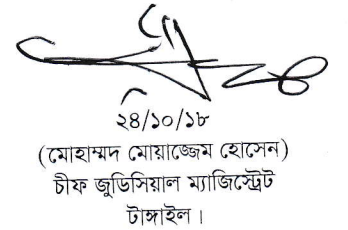 ২৪/১০/১৮
(মোহাম্মদ মোয়াজ্জেম হোসেন)
চীফ জুডিসিয়াল ম্যাজিস্ট্রেট
টাঙ্গাইল।